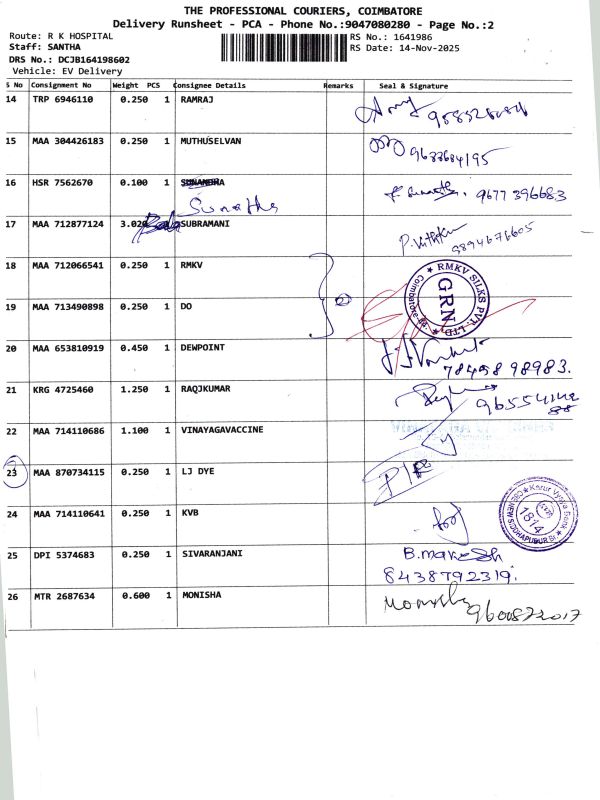 THE PROFESSIONAL COURIERS, COIMBATORE
Delivery Runsheet - PCA - Phone No.:9047080280 - Page No.:2
Route: R K HOSPITAL
RS No.: 1641986
Staff: SANTHA
RS Date: 14-Nov-2025
DRS No.: DCJB164198602
Vehicle: EV Delivery
S No Consignment No Weight PCS Consignee Details Remarks Seal & Signature
14 TRP 6946110 0.250 1 RAMRAJ
15 MAA 304426183 0.250 1 MUTHUSELVAN
16 HSR 7562670 0.100 1 SUNANDHA 9677396683
Sunatha
17 MAA 712877124 3.020 SUBRAMANI
18 MAA 712066541 0.250 1 RMKV
② RMKV SILKS PVT. LTD
GRN
19 MAA 713490898 0.250 1 DO
20 MAA 653810919 0.450 1 DEWPOINT
78498 98983.
21 KRG 4725460 1.250 1 RAQJKUMAR
22 MAA 714110686 1.100 1 VINAYAGAVACCINE
23 MAA 870734115 0.250 1 LJ DYE
24 MAA 714110641 0.250 1 KVB
Karur Vysya Bank
1814
CBE NEW SIDDHAPUDUR Br.
25 DPI 5374683 0.250 1 SIVARANJANI B.makesh
8438792319.
26 MTR 2687634 0.600 1 MONISHA Monisha
9600872017